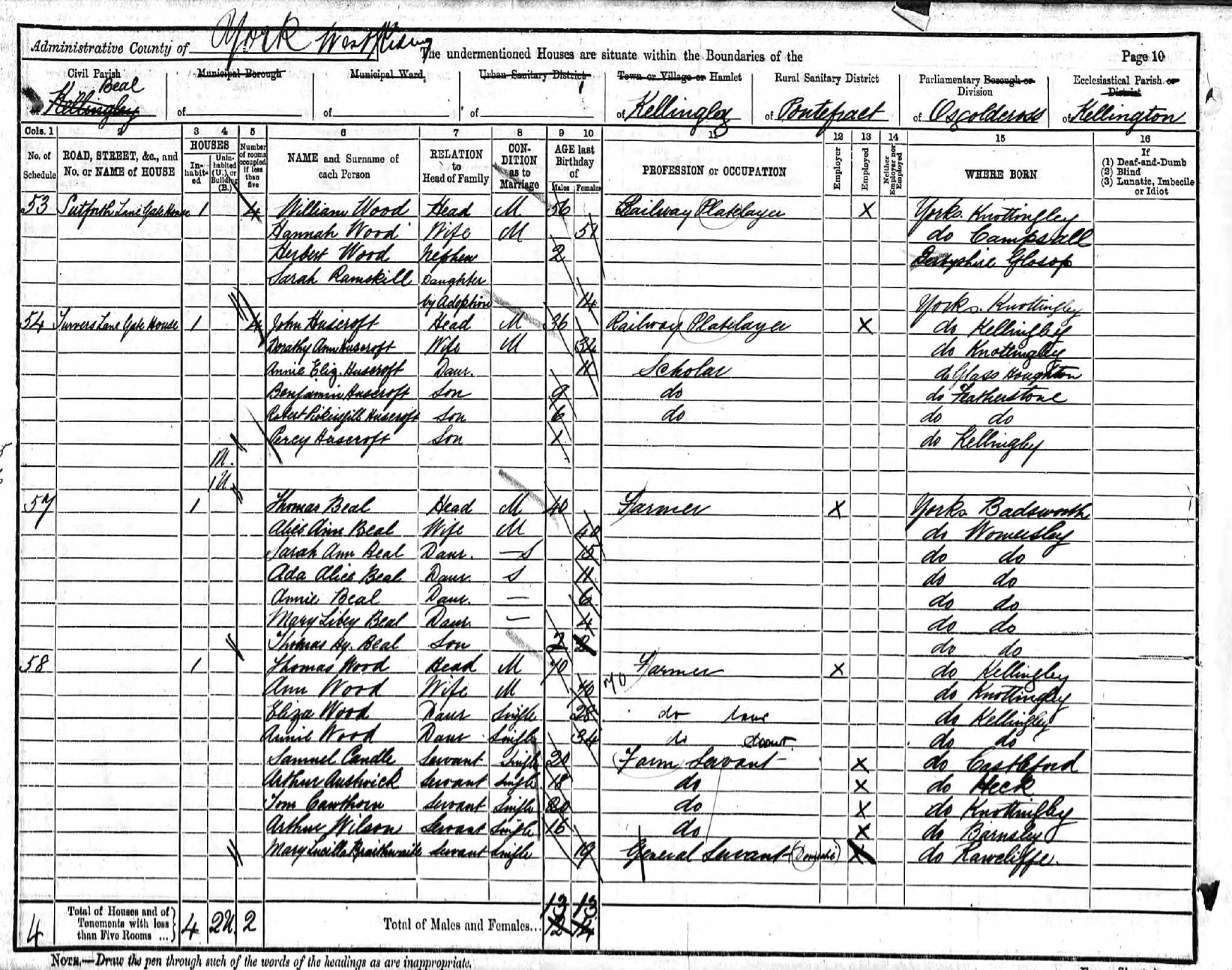 Administrative County of York West Riding The undermentioned Houses are situate within the Boundaries of the Page 10
Civil Parish Municipal Borough Municipal Ward, Urban Sanitary District Town or Village or Hamlet Rural Sanitary District Parliamentary Borough or Division Ecclesiastical Parish or District
Beal
of Kellingley of of of of Kellingley of Pontefract of Osgoldcross of Kellington
Cols. 1 2 3 4 5 6 7 8 9 10 11 12 13 14 15 16
No. of Schedule ROAD, STREET, &c., and No. or NAME of HOUSE HOUSES Inhabited Uninhabited (U.), or Building (B.) Number of rooms occupied if less than five NAME and Surname of each Person RELATION to Head of Family CONDITION as to Marriage AGE last Birthday of Males Females PROFESSION or OCCUPATION Employer Employed Neither Employer nor Employed WHERE BORN If (1) Deaf-and-Dumb (2) Blind (3) Lunatic, Imbecile or Idiot
53 Lane Gate House 1 4 William Wood Head M 56 Railway Platelayer X Yorks Knottingley
Hannah Wood Wife M 51 do Campsall
Herbert Wood Nephew 2 Derbyshire Glosop
Sarah Ramskill Daughter
by Adoption 14 Yorks Knottingley
54 Turvers Lane Gate House 1 4 John Huscroft Head M 36 Railway Platelayer X do Kellingley
Dorothy Ann Huscroft Wife M 34 do Knottingley
Annie Eliz. Huscroft Daur. 11 Scholar do Glass Houghton
Benjamin Huscroft Son 9 do do Featherstone
Robert Huscroft Son 6 do do do
Percy Huscroft Son 1 do Kellingley
1 U.
1 U.
57 1 Thomas Beal Head M 40 Farmer X Yorks Badsworth
Alice Ann Beal Wife M 40 do Womersley
Sarah Ann Beal Daur. — S 15 do do
Ada Alice Beal Daur S 11 do do
Annie Beal Daur. — 6 do do
Mary Beal Daur — 4 do do
Thomas Hy. Beal Son 2 do do
58 1 Thomas Wood Head M 70 Farmer X do Kellingley
Ann Wood Wife M 70 70 do Knottingley
Eliza Wood Daur Single 28 do daur do Kellingley
Annie Wood Daur Single 24 do daur. do do
Samuel Candle Servant Single 20 Farm Servant X do Castleford
Arthur Austwick Servant Single 18 do X do Heck
Tom Cawthorn Servant Single 20 do X do Knottingley
Arthur Wilson Servant Single 16 do X do Barnsley
Mary Lucilla Braithwaite Servant Single 19 General Servant (Domestic) X do Rawcliffe.
13 13
4 Total of Houses and of Tenements with less than Five Rooms ... 4 2U. 2 Total of Males and Females... 12 14
NOTE.—Draw the pen through such of the words of the headings as are inappropriate.